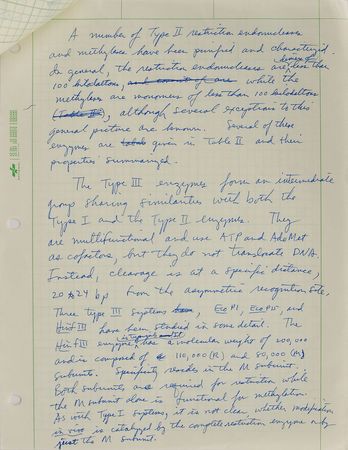 A number of Type II restriction endonucleases
and methylases have been purified and characterized.
In general, the restriction endonucleases are dimers less than
100 kilodaltons, and consist of are while the
methylases are monomers of less than 100 kilodaltons
(Table II), although several exceptions to this
general picture are known. Several of these
enzymes are given in Table II and their
properties summarized.
The Type III enzymes form an intermediate
group sharing similarities with both the
Type I and the Type II enzymes. They
are multifunctional and use ATP and AdoMet
as cofactors, but they do not translocate DNA.
Instead, cleavage is at a specific distance,
20-24 bp from the asymmetric recognition site.
Three type III systems, EcoP1, EcoP15, and
HinfIII have been studied in some detail. The
HinfIII enzyme has a molecular weight of 200,000
and is composed of 110,000 (R) and 80,000 (M)
subunits. Specificity resides in the M subunit.
Both subunits are required for restriction while
the M subunit alone is functional for methylation.
As with Type I systems, it is not clear, whether modification
in vivo is catalyzed by the complete restriction enzyme or by
just the M subunit.